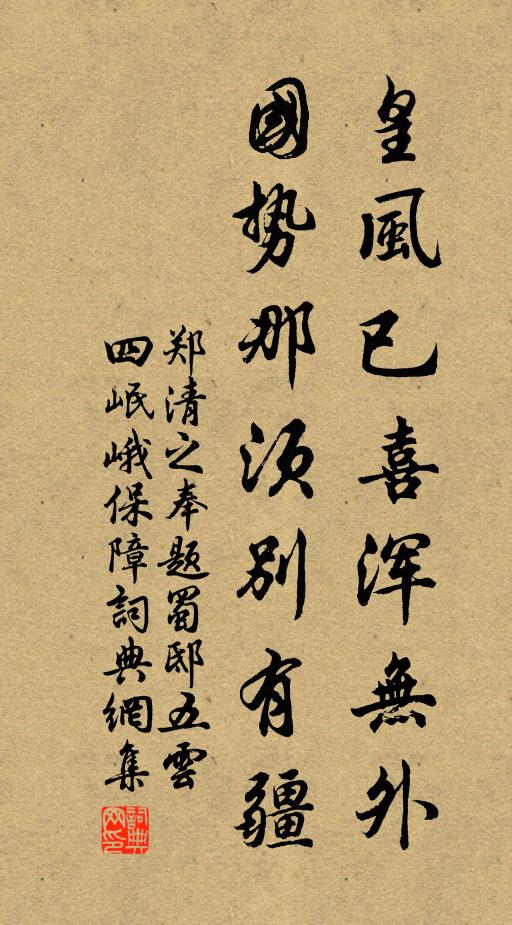 皇風已喜浑無外
國势那须别有疆
郑清之奉题蜀邸五雲
四岷峨保障詞典網集
詞典网印